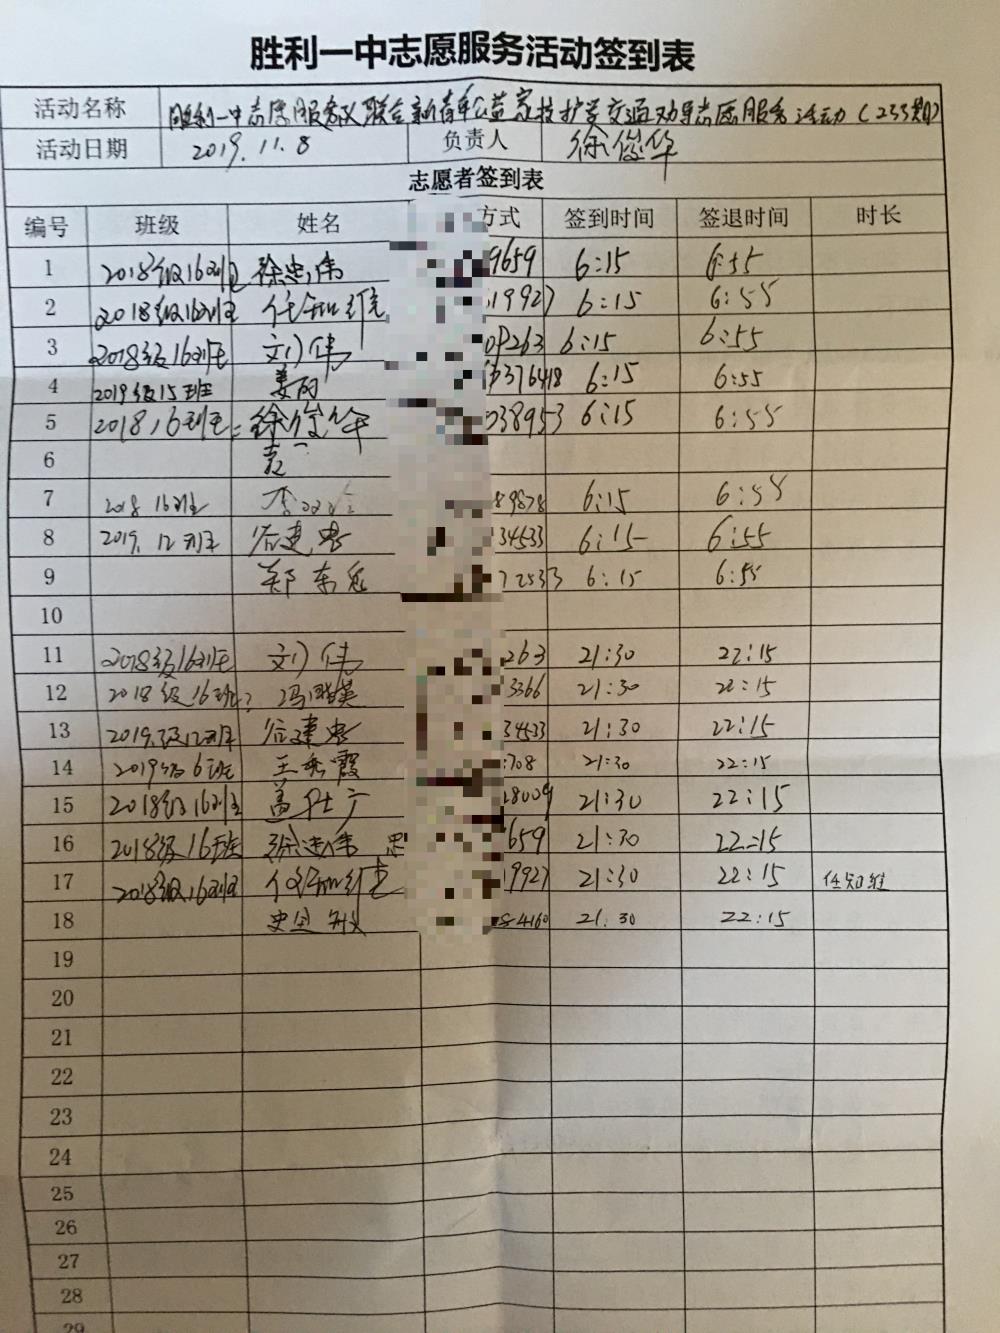 胜利一中志愿服务活动签到表
活动名称 胜利一中志愿服务队联合新青年公益家校护学交通劝导志愿服务活动(233期)
活动日期 2019.11.8 负责人 徐俊华
志愿者签到表
编号 班级 姓名 方式 签到时间 签退时间 时长
1 2018级16班 徐忠伟 9659 6:15 6:55
2 2018级16班 任知维 19927 6:15 6:55
3 2018级16班 刘伟 263 6:15 6:55
4 2019级15班 姜丽 376418 6:15 6:55
5 2018,16班 徐俊华 038953 6:15 6:55
6
7 2018 16班 李 89878 6:15 6:55
8 2019.12班 建忠 34533 6:15 6:55
9 郑东 72533 6:15 6:55
10
11 2018级16班 刘伟 263 21:30 22:15
12 2018级16班 冯 3366 21:30 22:15
13 2019级12班 建忠 34533 21:30 22:15
14 2019级6班 王秀霞 708 21:30 22:15
15 2018级16班 盖 28009 21:30 22:15
16 2018级16班 徐忠伟 忠 659 21:30 22:15
17 2018级16班 任知维 19927 21:30 22:15 任知维
18 史 敏 4160 21:30 22:15
19
20
21
22
23
24
25
26
27
28
29